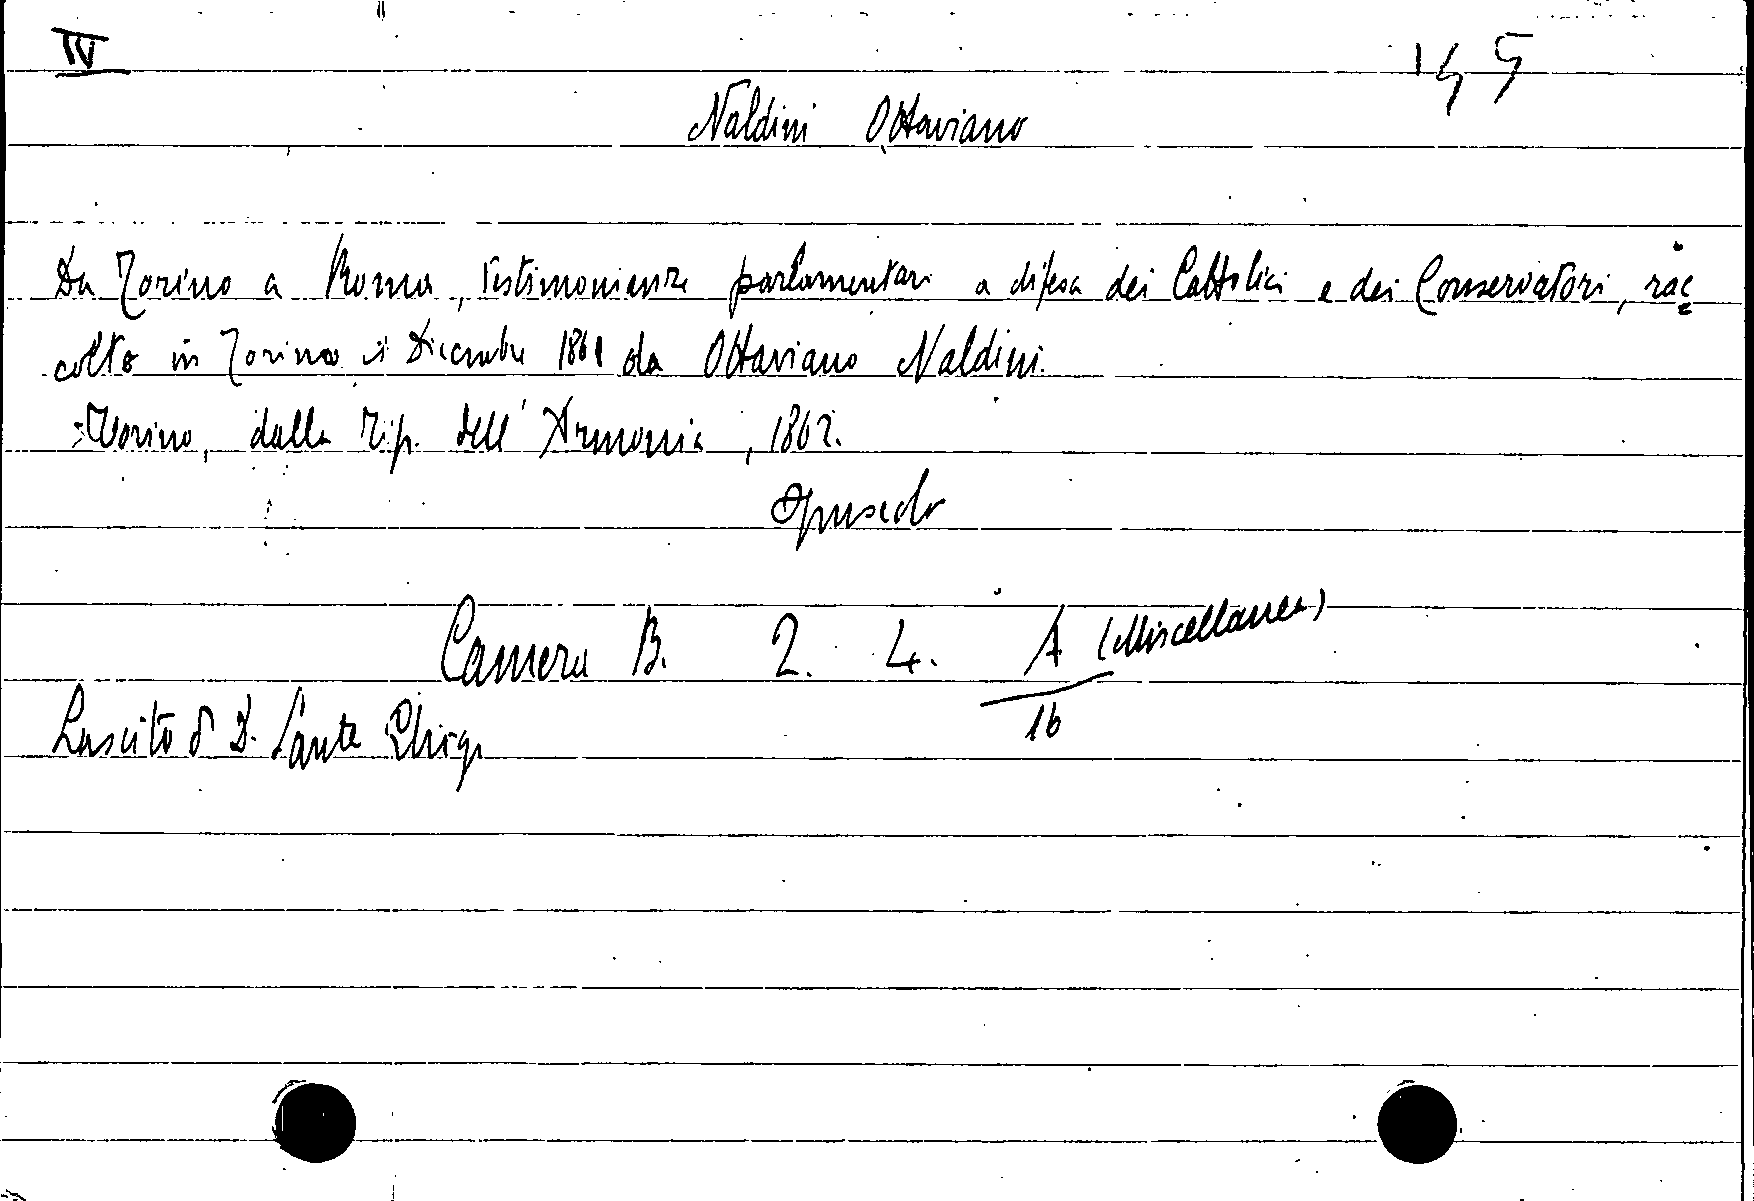 IV
145
Naldini Ottaviano
Da Torino a Roma, testimonianze parlamentari a difesa dei Cattolici e dei Conservatori, rac
colte in Torino il Dicembre 1861 da Ottaviano Naldini.
Torino, dalla Tip. dell' Armonia, 1862.
Opuscolo
Camera B. 2. 4. A (Miscellanea)
16
Lascito di D. Sante Ghigi